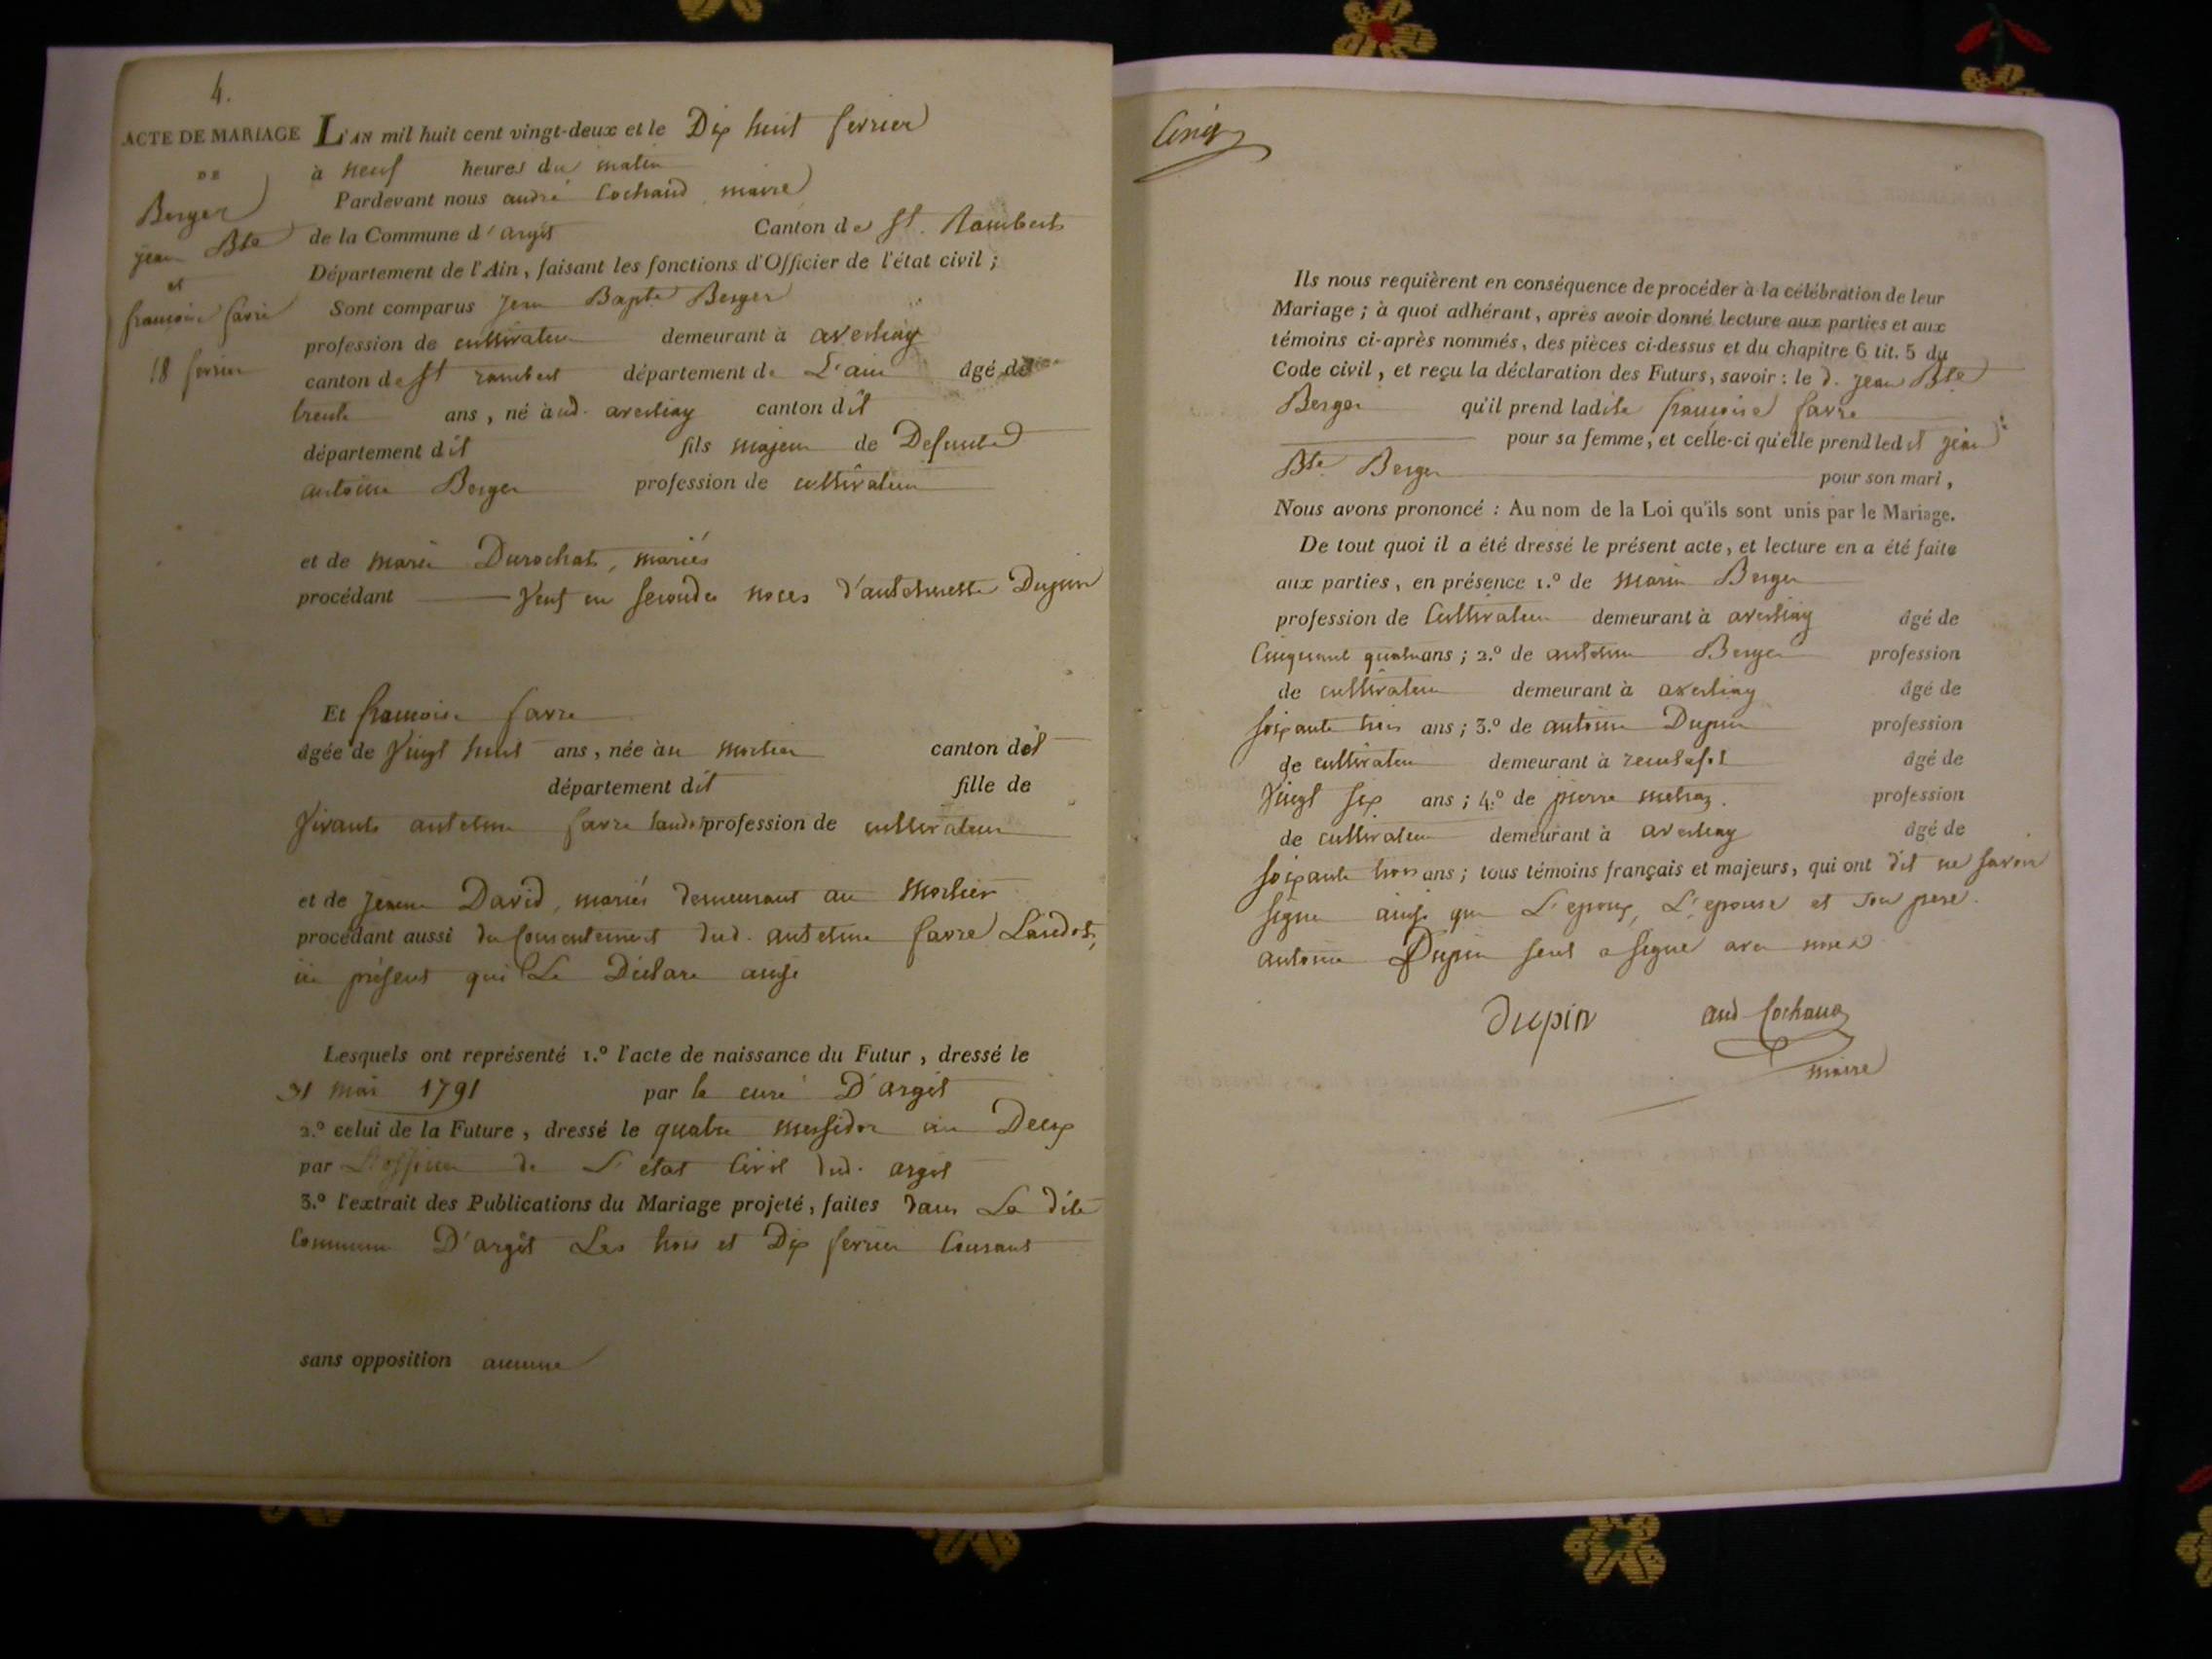 4.
ACTE DE MARIAGE
DE
Berger
jean Bte
et
françoise favre
18 fevrier
L'AN mil huit cent vingt-deux et le Dix huit fevrier
à neuf heures du matin
Pardevant nous andré Cochaud, maire
de la Commune d'argis Canton de St. Rambert
Département de l'Ain, faisant les fonctions d'Officier de l'état civil ;
Sont comparus Jean Bapte Berger
profession de cultivateur demeurant à averliay
canton de St rambert département de L'ain âgé de
trente ans, né àud. averliay canton dit
département dit fils majeur de Defunt
antoine Berger profession de cultivateur
et de marie Durochat, mariés
procédant Veuf en secondes noces d'anthelmette Dupin
Et françoise favre
âgée de Vingt huit ans, née au mortier canton dit
département dit fille de
Vivants antelme favre landot profession de cultivateur
et de jeanne David, mariés demeurant au Mortier
procédant aussi du Consentement dud. antelme favre Landot,
ici présent qui Le Déclare ainsi
Lesquels ont représenté 1.º l'acte de naissance du Futur, dressé le
31 mai 1791 par le curé D'argis
2.º celui de la Future, dressé le quatre messidor an Deux
par L'officier de L'état Civil dud. argis
3.º l'extrait des Publications du Mariage projeté, faites dans La dite
Commune D'argis Les trois et Dix fevrier Courant
sans opposition aucune
Cinq
Ils nous requièrent en conséquence de procéder à la célébration de leur
Mariage ; à quoi adhérant, après avoir donné lecture aux parties et aux
témoins ci-après nommés, des pièces ci-dessus et du chapitre 6 tit. 5 du
Code civil, et reçu la déclaration des Futurs, savoir : le d. jean Bte
Berger qu'il prend ladite françoise favre
pour sa femme, et celle-ci qu'elle prend ledit jean
Bte Berger pour son mari,
Nous avons prononcé : Au nom de la Loi qu'ils sont unis par le Mariage.
De tout quoi il a été dressé le présent acte, et lecture en a été faite
aux parties, en présence 1.º de Marin Berger
profession de Cultivateur demeurant à averliay âgé de
Cinquant quatre ans ; 2.º de antelme Berger profession
de cultivateur demeurant à averliay âgé de
soixante trois ans ; 3.º de antoine Dupin profession
de cultivateur demeurant à âgé de
Vingt six ans ; 4.º de pierre profession
de cultivateur demeurant à averliay âgé de
soixante trois ans ; tous témoins français et majeurs, qui ont dit ne savoir
signer ainsi que L'epoux, L'epouse et son pere.
antoine Dupin seul a signé avec nous
Dupin and Cochaud
maire